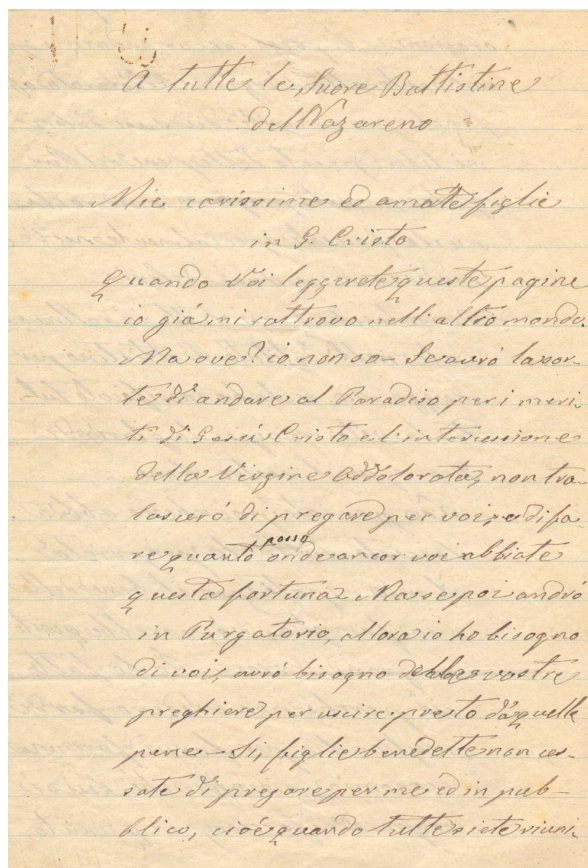 A tutte le Suore Battistine
del Nazareno
Mie carissime ed amate figlie
in G. Cristo
Quando Voi leggerete queste pagine
io giá mi rattrovo nell'altro mondo.
Ma ove? io non so - Se avró la sor-
te di andare al Paradiso per i meri-
ti di Gesú Cristo e l'intercessione
della Vergine Addolorata, non tra-
lasceró di pregare per voi, e di fa-
re quanto posso onde ancor voi abbiate
questa fortuna - Ma se poi andró
in Purgatorio, allora io ho bisogno
di voi, avró bisogno delle vostre
preghiere per uscire presto da quelle
pene - Si, figlie benedette non ces-
sate di pregare per me ed in pub-
blico, cioé quando tutte siete riuni-